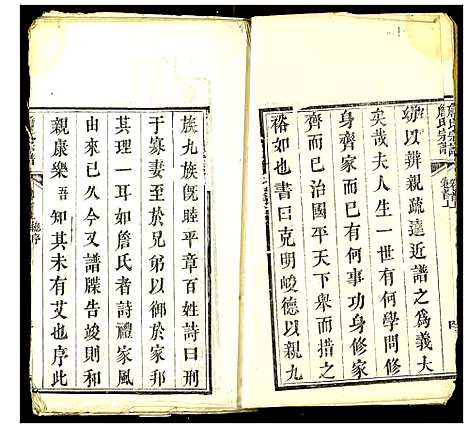 詹氏宗譜
幼以辨親疏達近譜之爲義大
矣哉夫人生一世有何學問修
身齊家而已有何事功身修家
齊而已治國平天下舉而措之
裕如也書曰克明峻德以親九
族九族旣睦平章百姓詩曰刑
于寡妻至於兄弟以御於家邦
其理一耳如詹氏者詩禮家風
由來已久今又譜牒告竣則和
親康樂吾知其未有艾也序此
總序